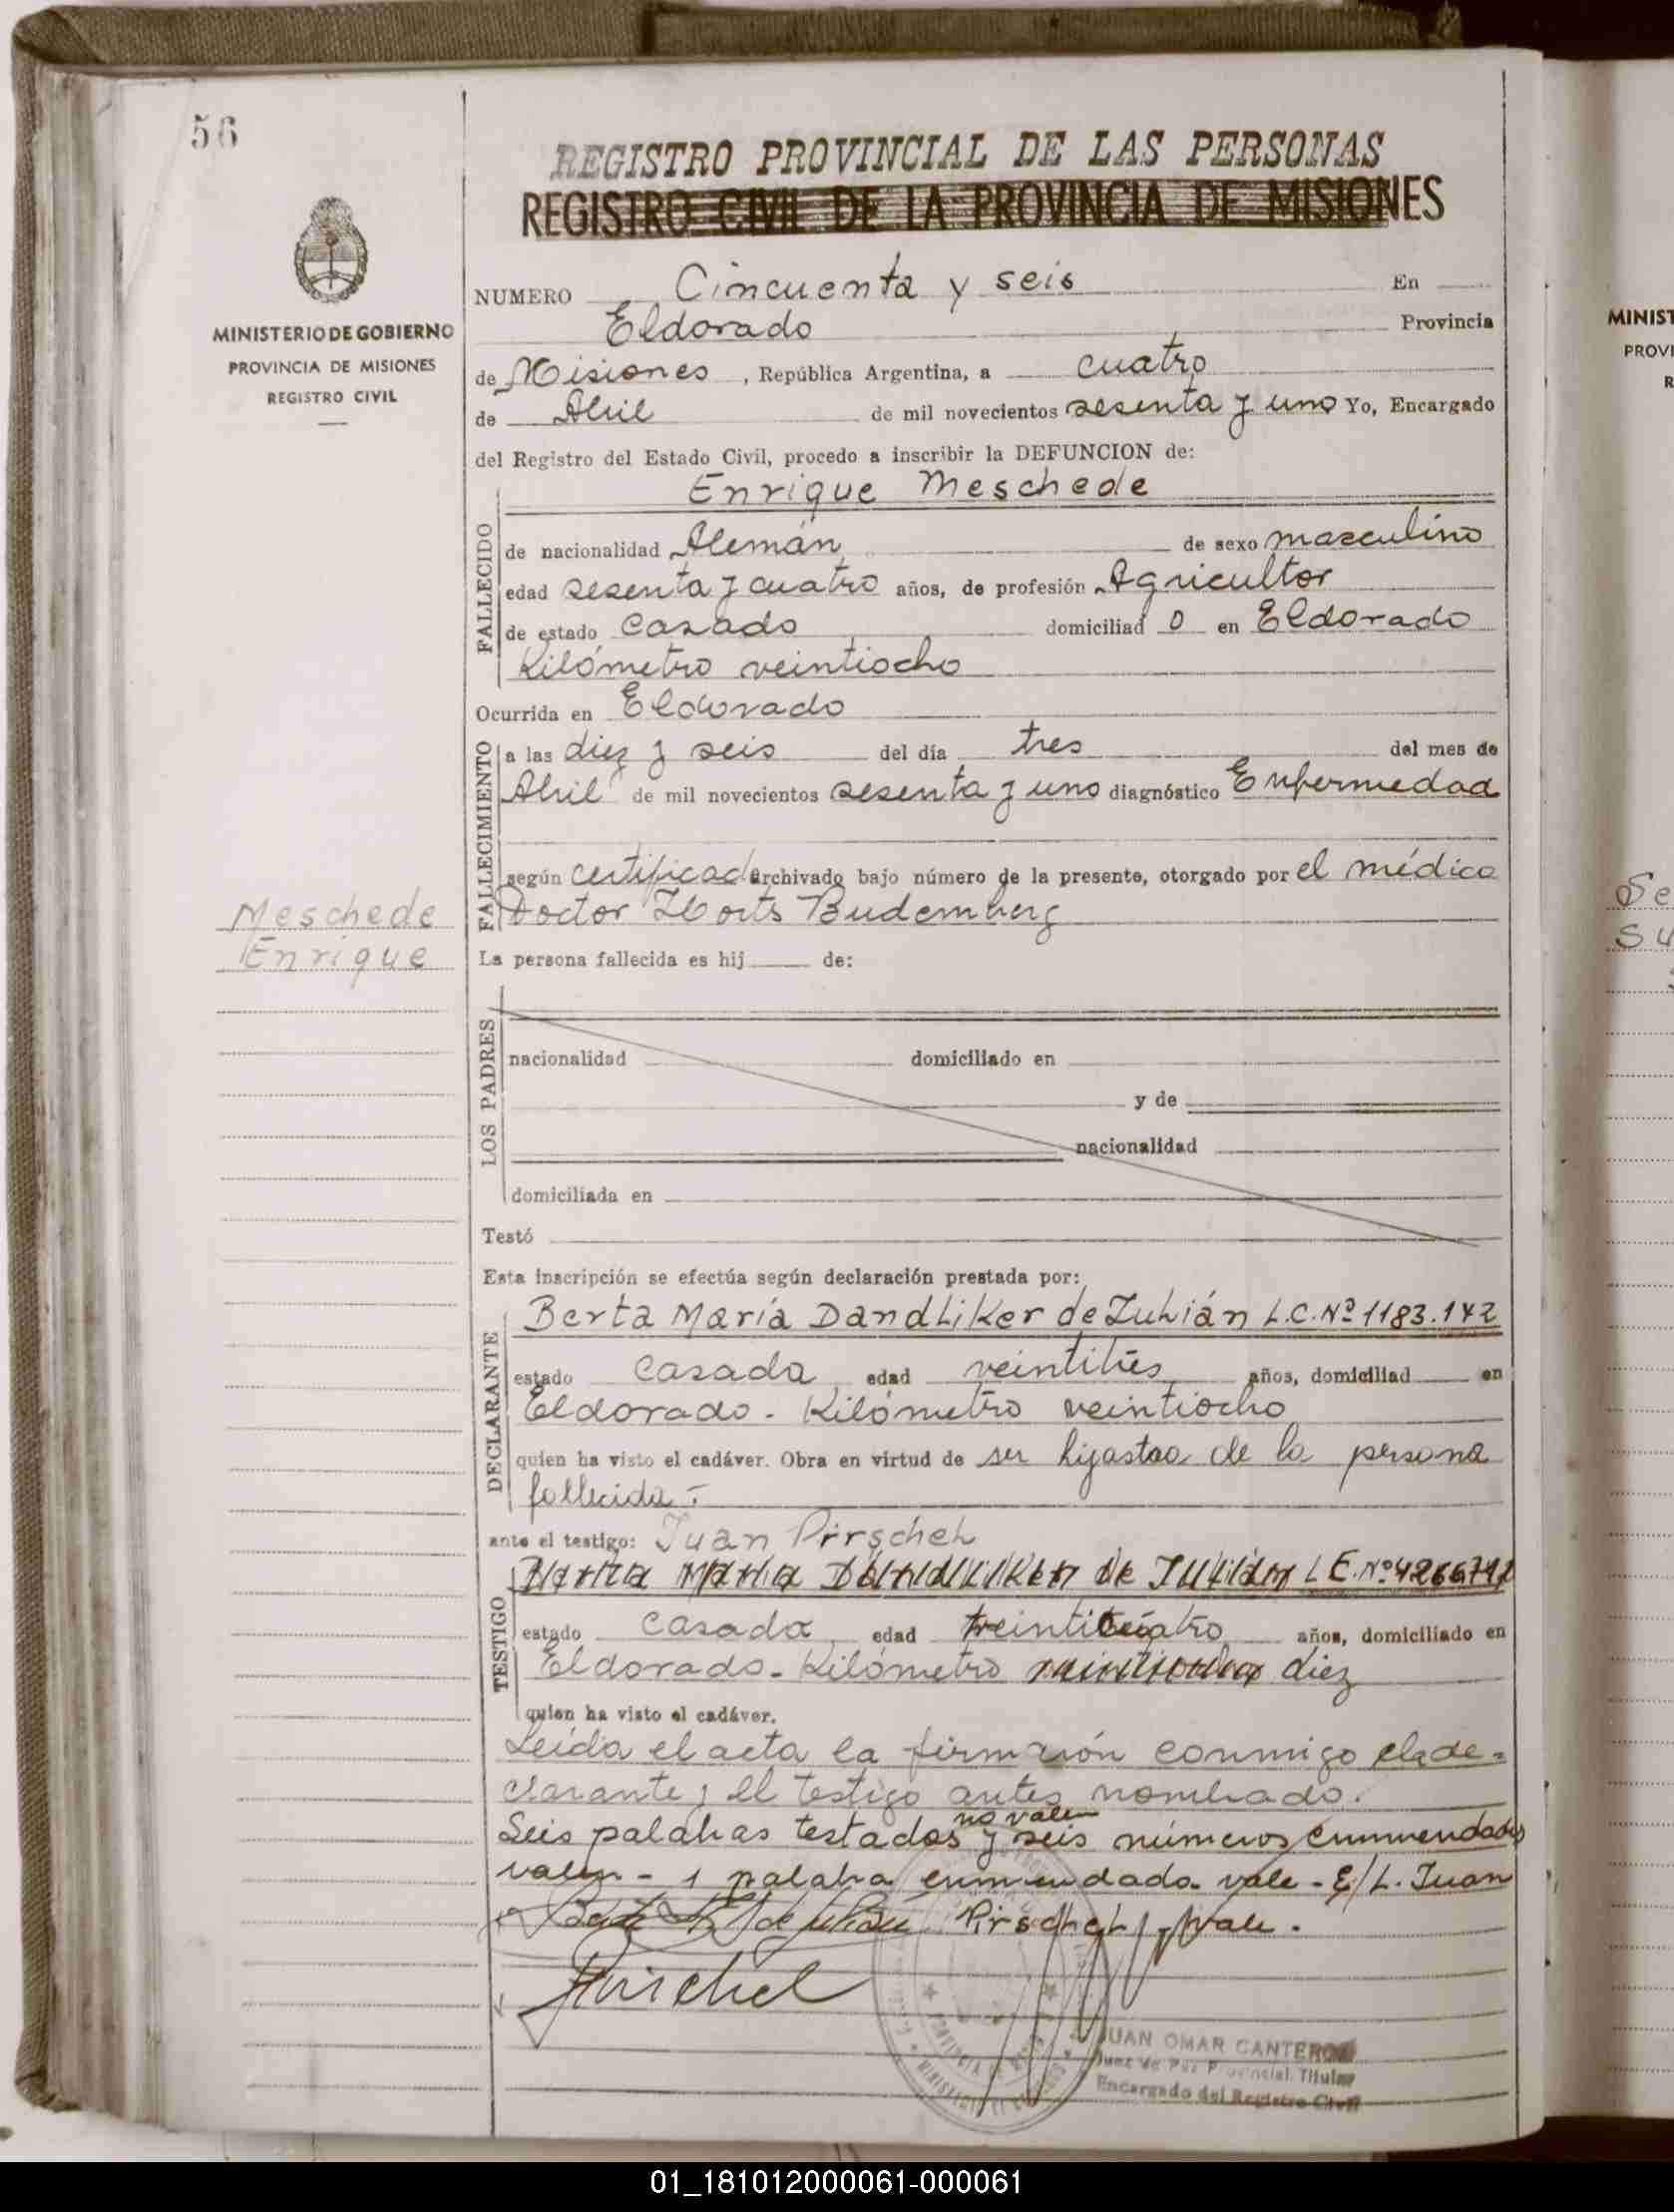 56
REGISTRO PROVINCIAL DE LAS PERSONAS
REGISTRO CIVIL DE LA PROVINCIA DE MISIONES
MINISTERIO DE GOBIERNO
PROVINCIA DE MISIONES
REGISTRO CIVIL
NUMERO Cincuenta y seis En
Eldorado Provincia
de Misiones, República Argentina, a cuatro
de Abril de mil novecientos sesenta y uno Yo, Encargado
del Registro del Estado Civil, procedo a inscribir la DEFUNCION de:
Enrique Meschede
FALLECIDO
de nacionalidad Alemán de sexo masculino
edad sesenta y cuatro años, de profesión Agricultor
de estado Casado domiciliad o en Eldorado
Kilómetro veintiocho
Ocurrida en Eldorado
FALLECIMIENTO
a las diez y seis del día tres del mes de
Abril de mil novecientos sesenta y uno diagnóstico Enfermedad
según certificado archivado bajo número de la presente, otorgado por el médico
Doctor Horts Budemberg
Meschede
Enrique
La persona fallecida es hij de:
LOS PADRES
nacionalidad domiciliado en
y de
nacionalidad
domiciliada en
Testó
Esta inscripción se efectúa según declaración prestada por:
DECLARANTE
Berta María Dandliker de Julián L.C. Nº 1183.142
estado Casada edad veintitrés años, domiciliad en
Eldorado - Kilómetro veintiocho
quien ha visto el cadáver. Obra en virtud de ser hijastra de la persona
fallecida.-
ante el testigo: Juan Pirschel
TESTIGO
Berta María Dandliker de Julián L E. Nº 4266791
estado Casado edad treinticuatro años, domiciliado en
Eldorado - Kilómetro veintiocho diez
quien ha visto el cadáver.
Leída el acta la firmarón conmigo la de-
clarante y el testigo antes nombrado.
no valen
Seis palabras testadas y seis números enmendados
valen - 1 palabra enmendada vale - E/L. Juan
Pirschel, vale.
Pirschel
PROVINCIA DE MISIONES
JUAN OMAR CANTEROS
Juez de Paz Provincial Titular
Encargado del Registro Civil
MINIST
PROVI
R
Se
Su
01_181012000061-000061